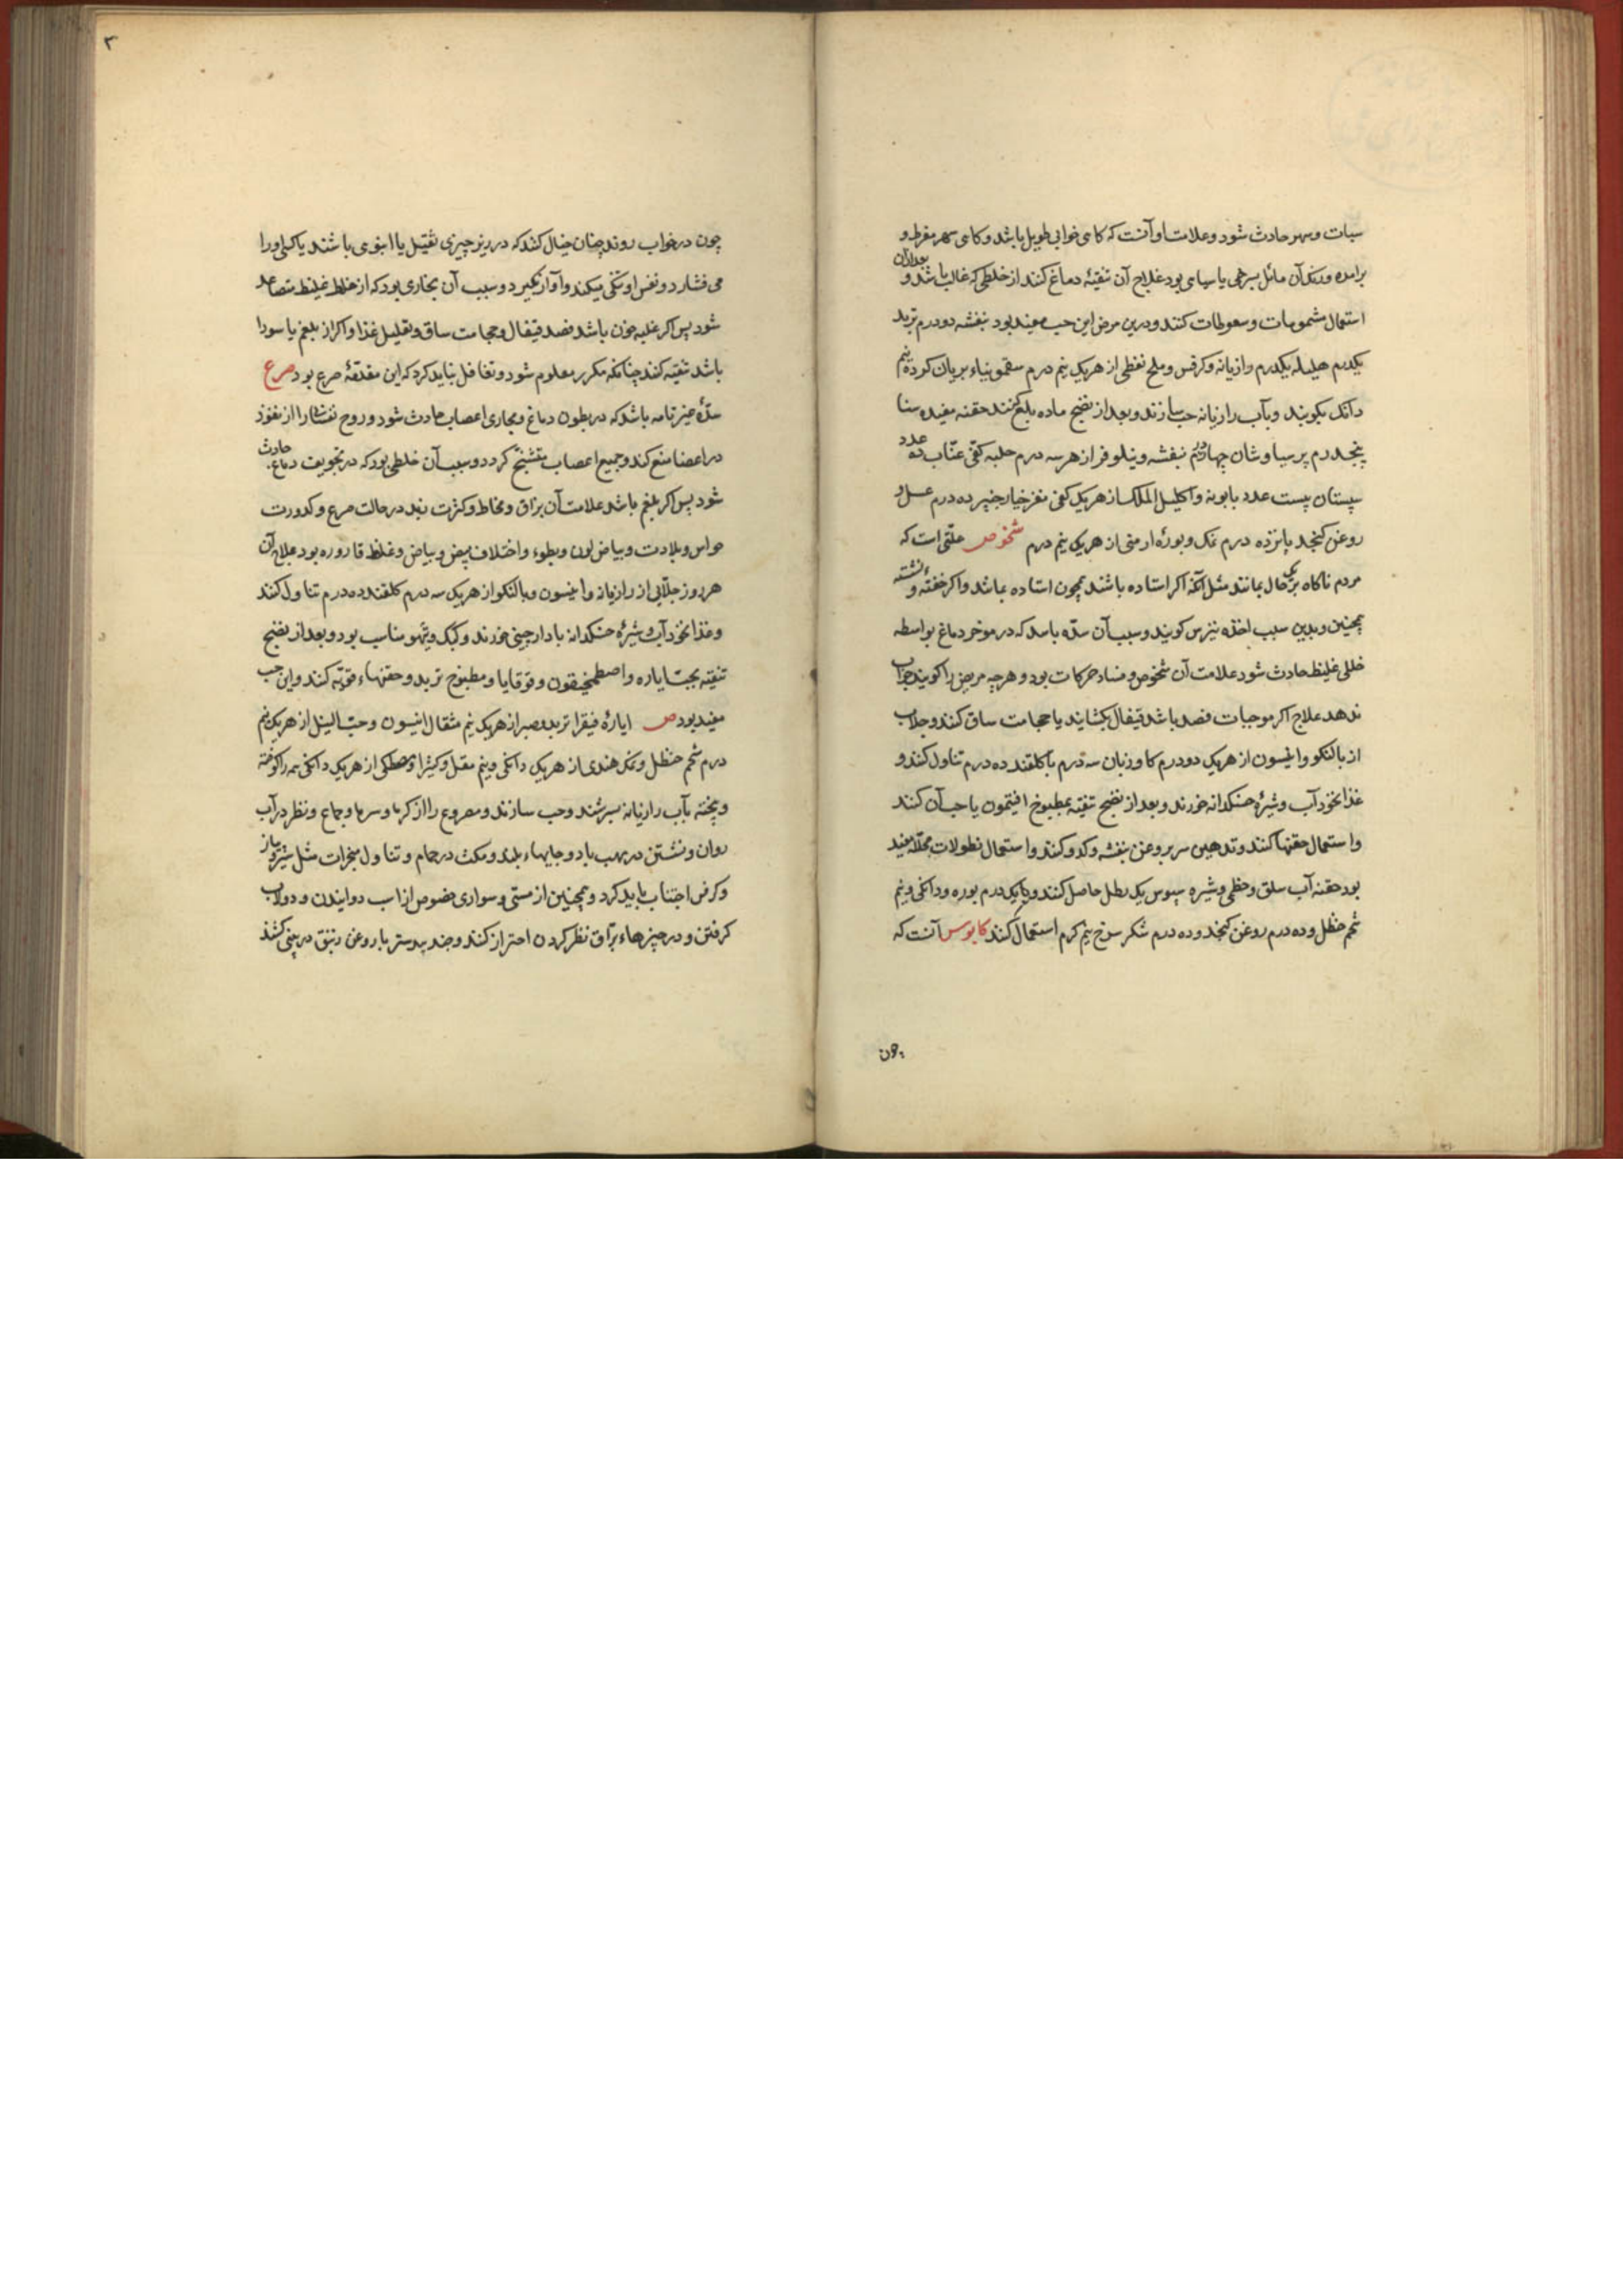 سبات و سهر حادث شود و علامت او آنست که کاهی خوابی طویل باشد و کاهی سهر مفرط و
برامده و رنک آن مائل بسرخی یا سیاهی بود علاج آن تنقیهٔ دماغ کنند از خلطی که غالب باشد و بعد از آن
استعمال مشمومات و سعوطات کنند و درین مرض این حب مفید بود بنفشه دو درم تربد
یکدرم هلیله یکدرم رازیانه و کرفس و ملح نفطی از هریک نیم درم سقمونیاء بریان کرده نیم
دانک بکوبند و بآب رازیانه حب سازند و بعد از نضج ماده بلغ کنند حقنه مفیده سنا
پنجدرم پرسیاوشان چهار درم بنفشه و نیلوفر از هر سه درم حلبه کفی عنّاب ده عدد
سپستان بیست عدد بابونه و اکلیل الملک از هریک کفی مغز خیارچنبر ده درم عسل و
روغن کنجد پانزده درم نمک و بورهٔ ارمنی از هریک نیم درم شخوص علتی است که
مردم ناکاه بر یک حال بمانند مثل آنکه اکر استاده باشند همچون استاده بمانند و اکر خفته و نشسته
همچنین و بدین سبب اخذه نیزس کویند و سبب آن سدّه باسد که در موخر دماغ بواسطه
خللی غلیظ حادث شود علامت آن شخوص و فساد حرکات بود و هرچه مریض را کویند جواب
ندهد علاج اکر موجبات فصد باشد قیفال بکشایند یا حجامت ساق کنند و جلاب
از بالنکو و انیسون از هریک دو درم کاوزبان سه درم با کلقند ده درم تناول کنند و
غذا نخودآب و شیرهٔ خسکدانه خورند و بعد از نضج تنقیه بمطبوخ افتیمون یا حب آن کنند
و استعمال حقنها کنند و تدهین سر بروغن بنفشه و کدو کنند و استعمال نطولات محلله مفید
بود حقنه آب سلق و خطمی و شیره سبوس یک رطل حاصل کنند و با یکدرم بوره و دانکی و نیم
شحم حنظل و ده درم روغن کنجد و ده درم شکر سرخ نیم کرم استعمال کنند کابوس آنست که
چون
۳
چون در خواب روند چنان خیال کنند که در زیر چیزی ثقیل یا انبوهی باشند یا کسی او را
می فشارد و نفس او تنکی میکند و آواز نکیرد و سبب آن بخاری بود که از خلط غلیظ متصاعد
شود پس اکر غلبه خون باشد فصد قیفال و حجامت ساق و تقلیل غذا و اکر از بلغم یا سودا
باشد تنقیه کنند چنانکه مکرر معلوم شود و تغافل نباید کرد که این مقدّمهٔ صرع بود صرع
سدّهٔ غیر تامه باشد که در بطون دماغ و مجاری اعصاب حادث شود و روح نفسانی را از نفوذ
در اعضا منع کند و جمیع اعصاب متشنّج کردد و سبب آن خلطی بود که در تجویف دماغ حادث
شود پس اکر بلغم باشد علامت آن بزاق و مخاط و کثرت زبد در حالت صرع و کدورت
حواس و بلادت و بیاض لون و بطوء و اختلاف نبض و بیاض و غلظ قاروره بود علاج آن
هر روز جلّابی از رازیانه و انیسون و بالنکو از هریک سه درم کلقند ده درم تناول کنند
و غذا نخودآب و شیرهٔ خسکدانه با دارچینی خورند و کبک و تیهو مناسب بود و بعد از نضج
تنقیه بحب ایاره و اصطمخیقون و قوقایا و مطبوخ تربد و حقنهاء قویّه کنند و این حب
مفید بود ص ایارهٔ فیقرا تربد و صبر از هریک نیم مثقال انیسون و حبّ النیل از هریک نیم
درم شحم حنظل و نمک هندی از هریک دانکی و نیم مقل و کتیرا و مصطکی از هریک دانکی همه را کوفته
و پخته بآب رازیانه بسرشند و حب سازند و مصروع را از کرما و سرما و جماع و نظر در آب
روان و نشستن در مهب باد و جایهاء بلند و مکث در حمام و تناول مبخرات مثل شیر و پیاز
و کرفس اجتناب باید کرد و همچنین از مستی و سواری خصوص از اسب دوانیدن و دولاب
کرفتن و در چیزهاء برّاق نظر کردن احتراز کنند و جند بیدستر با روغن زنبق در بینی کشند